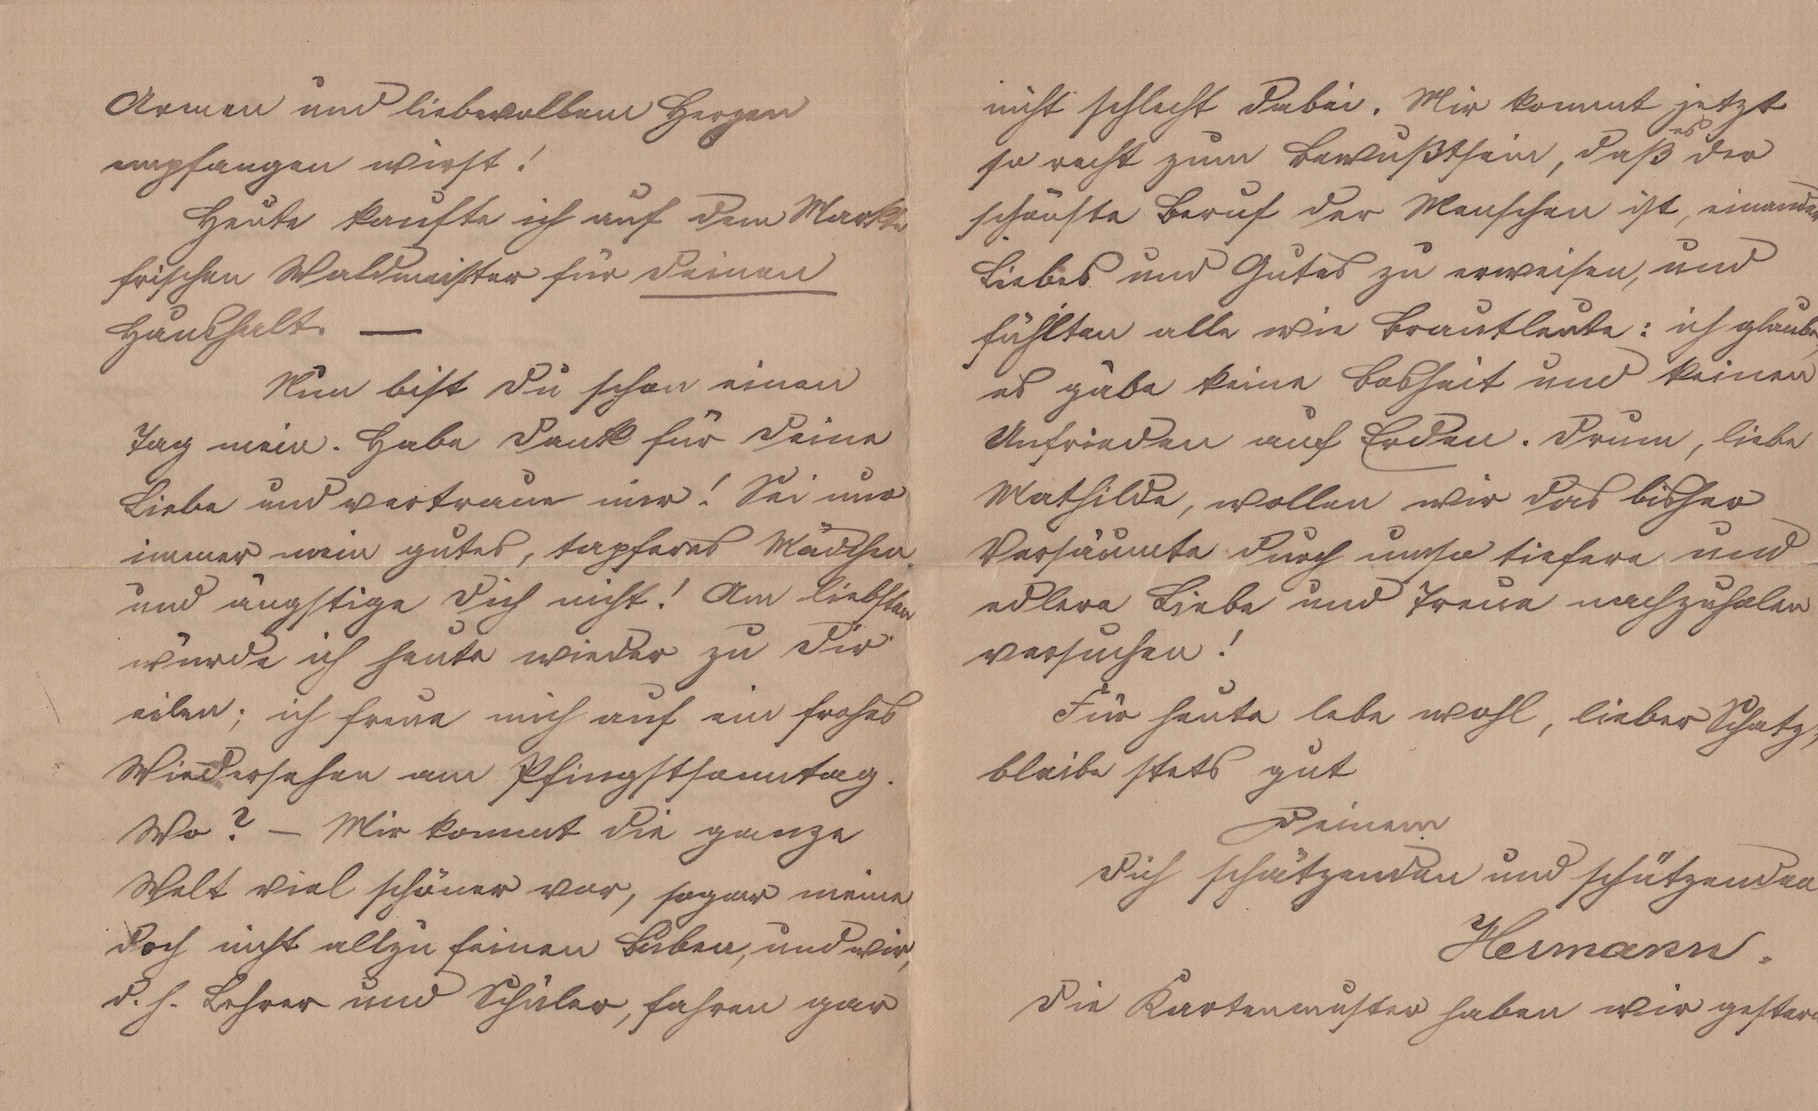 Armen und liebevollem Herzen
empfangen wirst!
Heute kaufte ich auf dem Markte
frischen Waldmeister für deinen
Haushalt. —
Nun bist Du schon einen
Tag mein. Habe Dank für Deine
Liebe und vertraue mir! Sei nur
immer mein gutes, tapferes Mädchen
und ängstige Dich nicht! Am liebsten
würde ich heute wieder zu Dir
eilen; ich freue mich auf ein frohes
Wiedersehen am Pfingstsonntag.
Wo? — Mir kommt die ganze
Welt viel schöner vor, sogar meine
doch nicht allzu feinen Buben, und wir,
d. h. Lehrer und Schüler, fahren gar
nicht schlecht dabei. Mir kommt jetzt
so recht zum Bewußtsein, daß es der
schönste Beruf der Menschen ist, einander
Liebes und Gutes zu erweisen, und
fühlten alle wie Brautleute: ich glaube,
es gäbe keine Bosheit und keinen
Unfrieden auf Erden. Drum, liebe
Mathilde, wollen wir das bisher
Versäumte durch umso tiefere und
edlere Liebe und Treue nachzuholen
versuchen!
Für heute lebe wohl, lieber Schatz,
bleibe stets gut
Deinem
Dich schätzenden und schützenden
Hermann.
Die Kartenmuster haben wir gestern